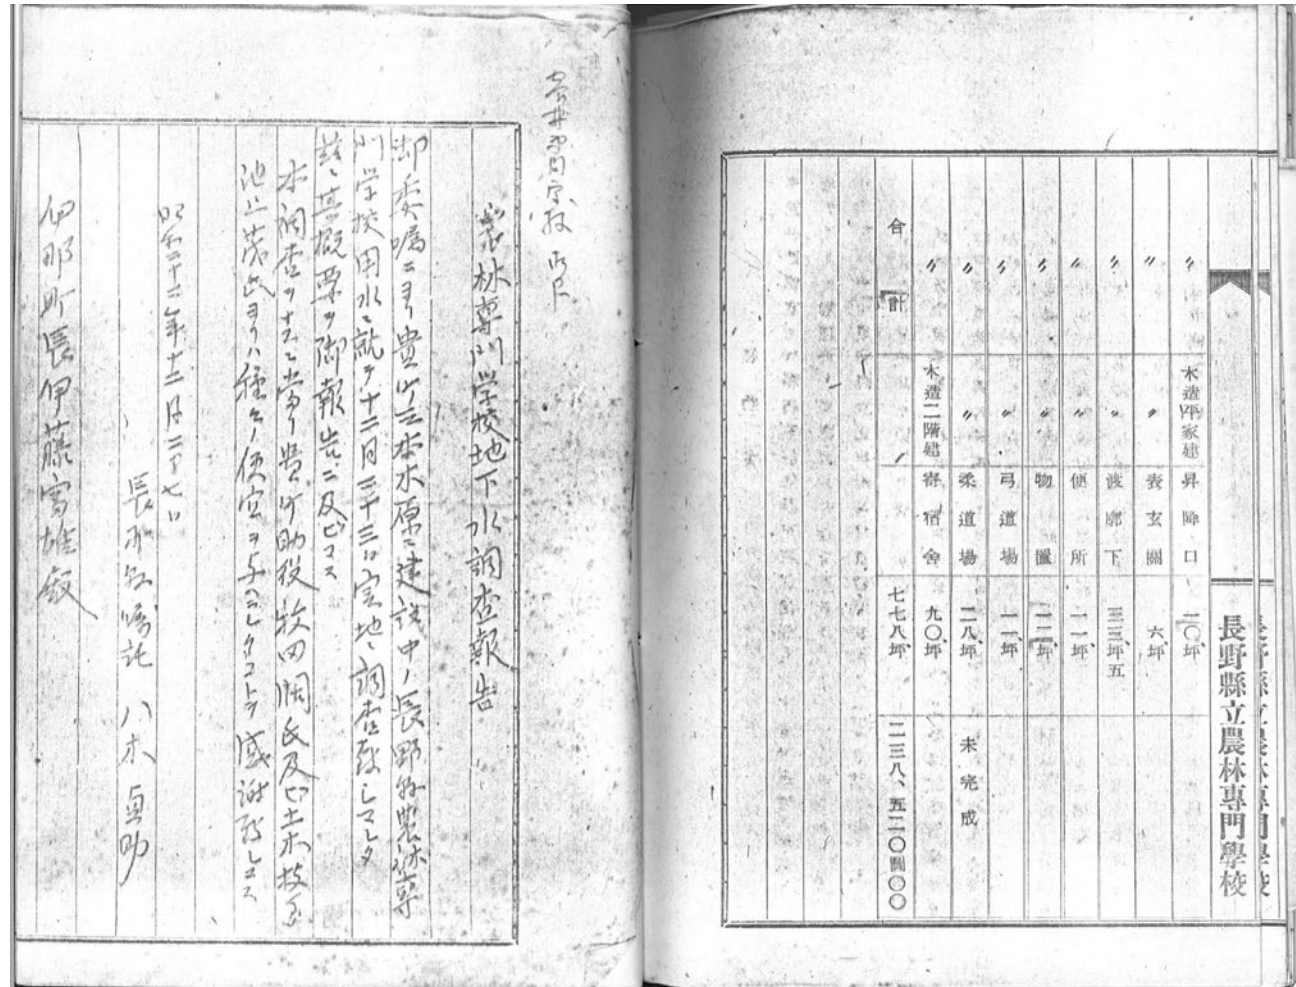 長野縣立農林專門學校
〃 木造平家建 昇降口 二〇、坪
〃 〃 表玄關 六、坪
〃 〃 渡廊下 三三、坪五
〃 〃 便所 一一、坪
〃 〃 物置 一二、坪
〃 〃 弓道場 一一、坪
〃 〃 柔道場 二八、坪 未完成
〃 木造二階建 寄宿舍 九〇、坪
合計 七七八、坪 二三八、五二〇圓〇〇
農林専門学校地下水調査報告
御委嘱ニヨリ貴町三本木原ニ建設中ノ長野県農林専
門学校用水ニ就テ十二月二十三日実地ニ調査致シマシタ
茲ニ其概要ヲ御報告ニ及ビマス
本調査ヲナスニ当リ貴町助役牧田 氏及ビ土木技手
池上 氏ヨリハ種々ノ便宜ヲ与ヘラレタコトヲ感謝致シマス
昭和二十二年十二月二十七日
長野県嘱託 八木貞助
伊那町長伊藤富雄殿